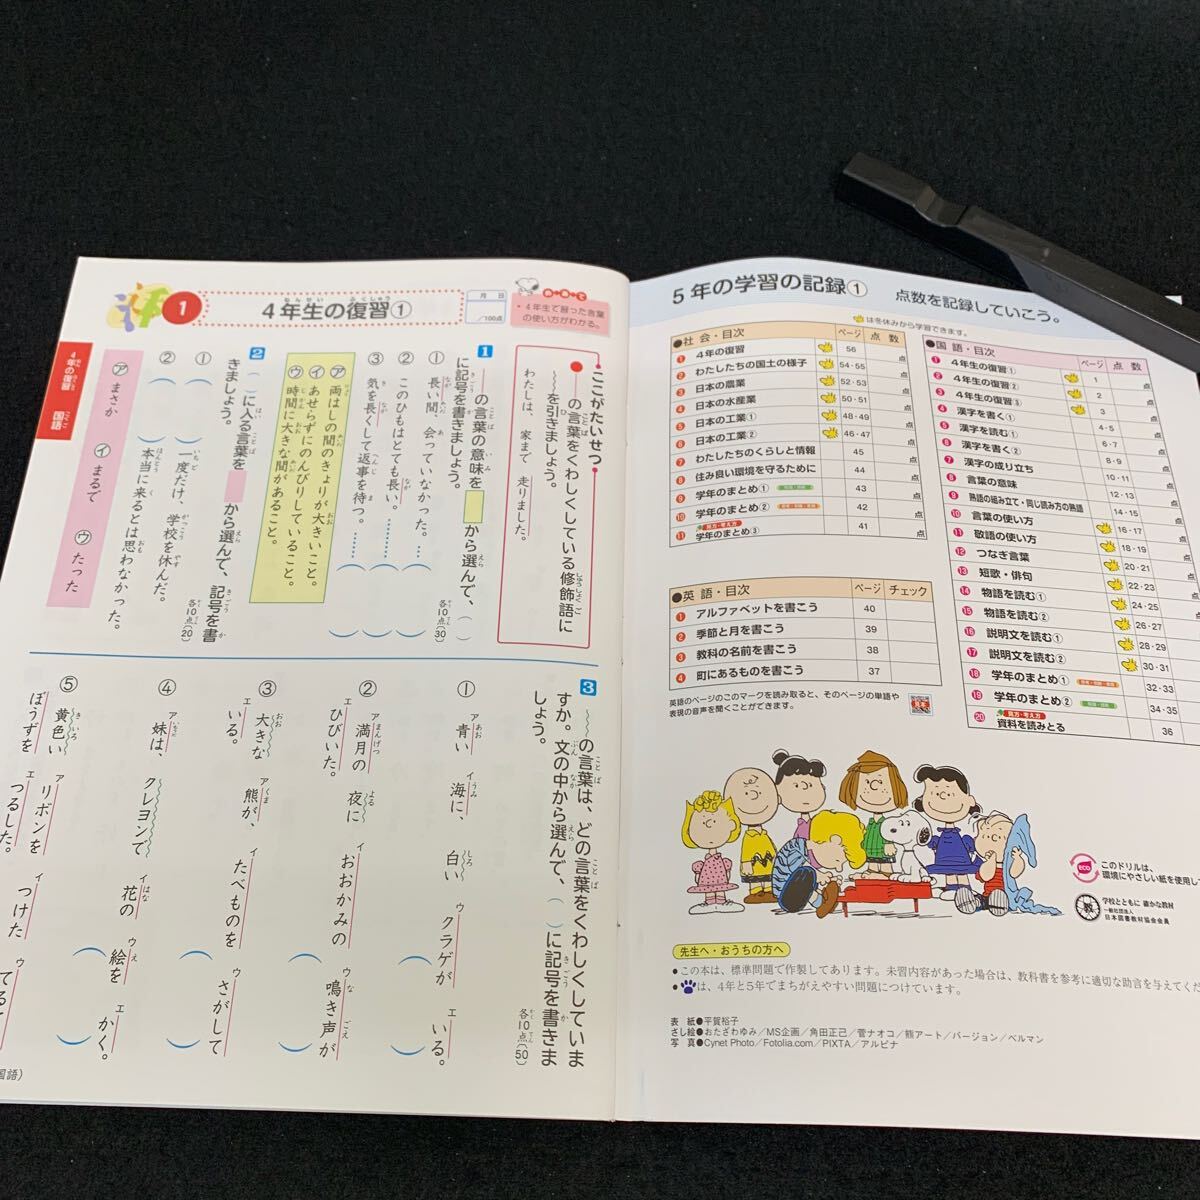 5年の学習の記録①
点数を記録していこう。
は冬休みから学習できます。
●国語・目次 ページ 点数
1 4年生の復習① 1 点
2 4年生の復習② 2 点
3 4年生の復習③ 3 点
4 漢字を書く① 4・5 点
5 漢字を読む① 6・7 点
6 漢字を書く② 8・9 点
7 漢字の成り立ち 10・11 点
8 言葉の意味 12・13 点
9 熟語の組み立て・同じ読み方の熟語 14・15 点
10 言葉の使い方 16・17 点
11 敬語の使い方 18・19 点
12 つなぎ言葉 20・21 点
13 短歌・俳句 22・23 点
14 物語を読む① 24・25 点
15 物語を読む② 26・27 点
16 説明文を読む① 28・29 点
17 説明文を読む② 30・31 点
18 学年のまとめ① 32・33 点
19 学年のまとめ② 34・35 点
20 見方・考え方 資料を読みとる 36 点
●社会・目次 ページ 点数
1 4年の復習 56 点
2 わたしたちの国土の様子 54・55 点
3 日本の農業 52・53 点
4 日本の水産業 50・51 点
5 日本の工業① 48・49 点
6 日本の工業② 46・47 点
7 わたしたちのくらしと情報 45 点
8 住み良い環境を守るために 44 点
9 学年のまとめ① 43 点
10 学年のまとめ② 42 点
11 見方・考え方 学年のまとめ③ 41 点
●英語・目次 ページ チェック
1 アルファベットを書こう 40
2 季節と月を書こう 39
3 教科の名前を書こう 38
4 町にあるものを書こう 37
英語のページのこのマークを読み取ると、そのページの単語や
表現の音声を聞くことができます。
ECO
このドリルは、
環境にやさしい紙を使用して
教
学校とともに 確かな教材
一般社団法人
日本図書教材協会会員
先生へ・おうちの方へ
●この本は、標準問題で作製してあります。未習内容があった場合は、教科書を参考に適切な助言を与えてくだ
●は、4年と5年でまちがえやすい問題につけています。
表 紙●平賀裕子
さし絵●おたざわゆみ／MS企画／角田正己／菅ナオコ／熊アート／バージョン／ベルマン
写 真●Cynet Photo／Fotolia.com／PIXTA／アルピナ
1
4年生の復習①
月 日
/100点
めあて
・4年生で習った言葉
の使い方がわかる。
4年の復習 国語
ここがたいせつ
●――の言葉をくわしくしている修飾語に
〜〜を引きましょう。
わたしは、家まで 走りました。
1 ――の言葉の意味を から選んで、( )
に記号を書きましょう。 各10点(30)
① 長い間、会っていなかった。……( )
② このひもはとても長い。……( )
③ 気を長くして返事を待つ。……( )
ア 両はしの間のきょりが大きいこと。
イ あせらずにのんびりしていること。
ウ 時間に大きな間があること。
2 ( )に入る言葉を から選んで、記号を書
きましょう。 各10点(20)
① ( )一度だけ、学校を休んだ。
② ( )本当に来るとは思わなかった。
ア まさか イ まるで ウ たった
3 〜〜の言葉は、どの言葉をくわしくしていま
すか。文の中から選んで、( )に記号を書きま
しょう。 各10点(50)
① ア青い イ海に、 白い ウクラゲが エいる。
( )
② ア満月の 夜に イおおかみの ウ鳴き声が
エひびいた。 ( )
③ 大きな ア熊が、 イたべものを ウさがして
エいる。 ( )
④ ア妹は、 クレヨンで イ花の ウ絵を エかく。
( )
⑤ 黄色い アリボンを イつけた ウてるて
ぼうずを エつるした。
国語)